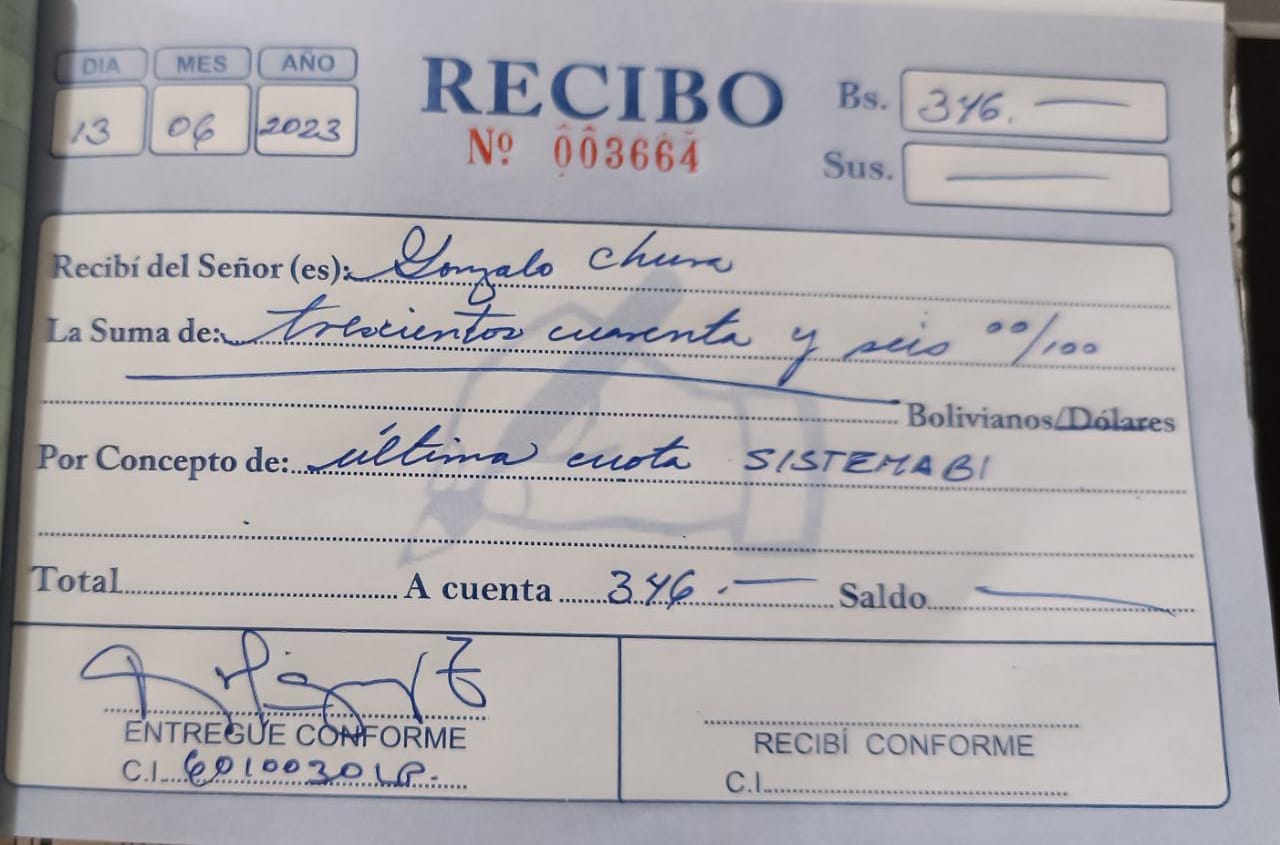 DIA MES AÑO
13 06 2023
RECIBO
Nº 003664
Bs. 346.
Sus.
Recibí del Señor (es): Gonzalo Chura
La Suma de: trescientos cuarenta y seis 00/100
Bolivianos/Dólares
Por Concepto de: última cuota SISTEMA BI
Total A cuenta 346.- Saldo
ENTREGUE CONFORME
C.I. 6010030 LP.
RECIBÍ CONFORME
C.I.